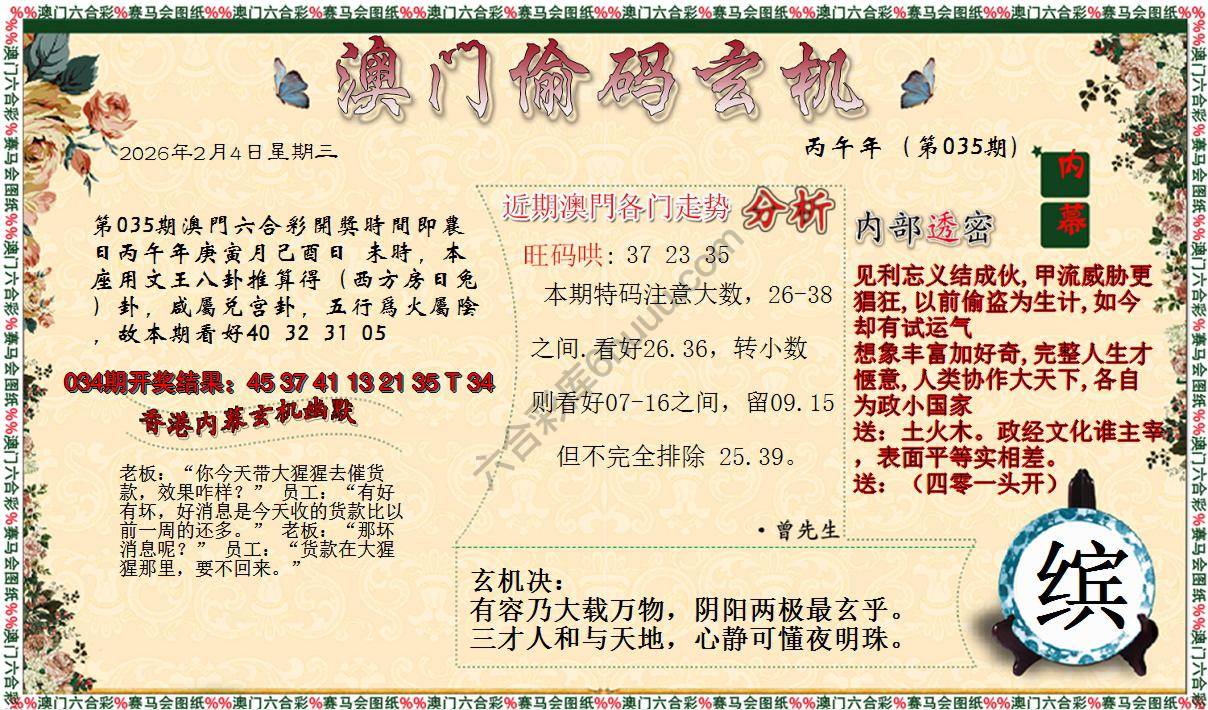 %%澳门六合彩%赛马会图纸%%澳门六合彩%赛马会图纸%%澳门六合彩%赛马会图纸%%澳门六合彩%赛马会图纸%%澳门六合彩%赛马会图纸%%澳门六合彩%赛马会图纸
澳门偷码玄机
2026年2月4日星期三
丙午年（第035期）
内幕
第035期澳門六合彩開獎時間即農
日丙午年庚寅月己酉日 未時，本
座用文王八卦推算得（西方房日兔
）卦，咸屬兑宫卦，五行爲火屬陰
，故本期看好40 32 31 05
034期开奖结果：45 37 41 13 21 35 T 34
香港内幕玄机幽默
老板：“你今天带大猩猩去催货
款，效果咋样？” 员工：“有好
有坏，好消息是今天收的货款比以
前一周的还多。” 老板：“那坏
消息呢？” 员工：“货款在大猩
猩那里，要不回来。”
近期澳門各门走势 分析
旺码哄：37 23 35
本期特码注意大数，26-38
之间.看好26.36，转小数
则看好07-16之间，留09.15
但不完全排除 25.39。
·曾先生
内部透密
见利忘义结成伙,甲流威胁更
猖狂,以前偷盗为生计,如今
却有试运气
想象丰富加好奇,完整人生才
惬意,人类协作大天下,各自
为政小国家
送：土火木。政经文化谁主宰
，表面平等实相差。
送：（四零一头开）
玄机决：
有容乃大载万物，阴阳两极最玄乎。
三才人和与天地，心静可懂夜明珠。
缤
%%澳门六合彩%赛马会图纸%%澳门六合彩%赛马会图纸%%澳门六合彩%赛马会图纸%%澳门六合彩%赛马会图纸%%澳门六合彩%赛马会图纸%%澳门六合彩%赛马会图纸